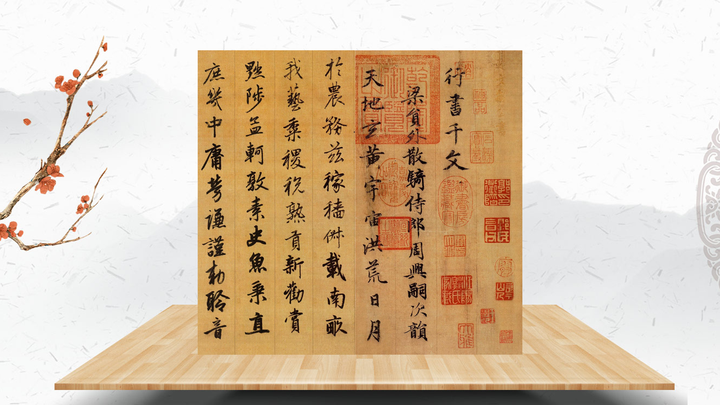 行書千文
梁貟外散騎侍郎周興嗣次韻
天地玄黃宇宙洪荒日月
於農務茲稼穡俶載南畝
我藝黍稷稅熟貢新勸賞
黜陟孟軻敦素史魚秉直
庶幾中庸勞謙謹勅聆音